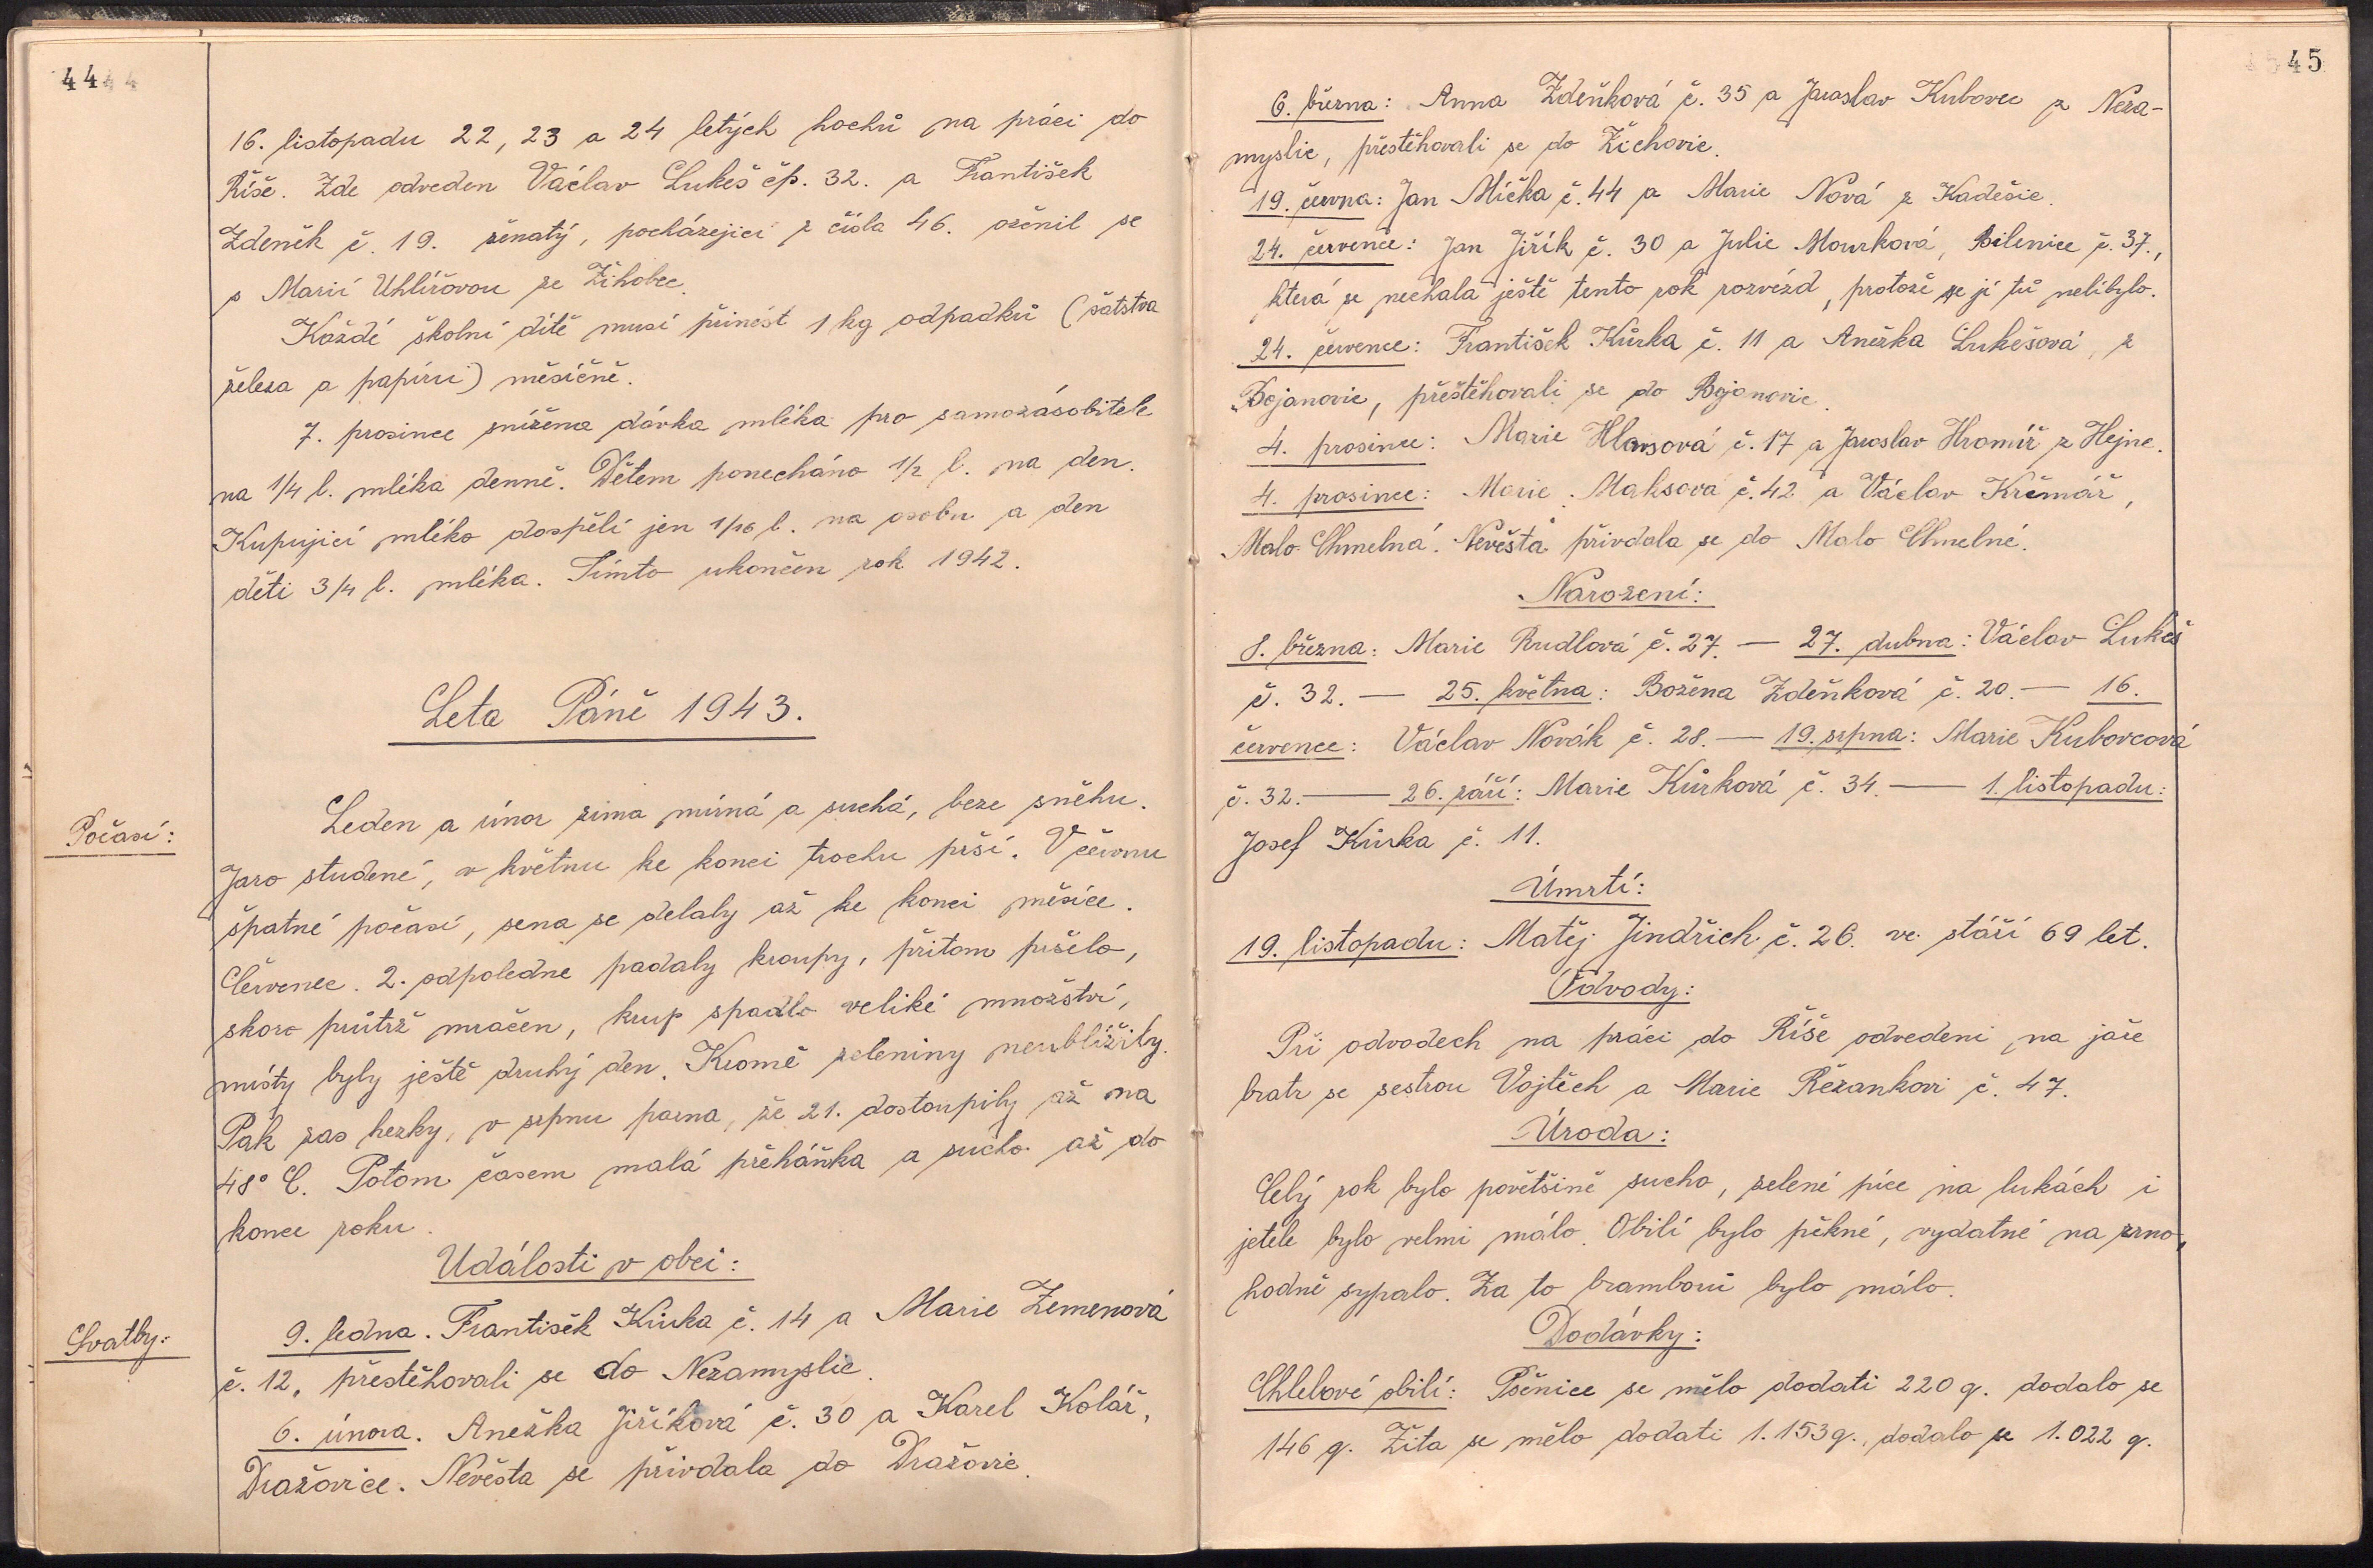 44
16. listopadu 22, 23 a 24 letých hochů na práci do
Říše. Zde odveden Václav Lukeš čp. 32. a František
Zdeněk č. 19. ženatý, pocházejicí z čísla 46. oženil se
s Marií Uhlířovou ze Žihobec.
Každé školní dítě musí přinést 1 kg odpadků (šatstva
železa a papíru) měsíčně.
7. prosince snížena dávka mléka pro samozásobitele
na 1/4 l. mléka denně. Dětem ponecháno 1/2 l. na den.
Kupující mléko dospělí jen 1/16 l. na osobu a den
děti 3/4 l. mléka. Tímto ukončen rok 1942.
Leta Páně 1943.
Počasí:
Leden a únor zima mírná a suchá, beze sněhu.
Jaro studené, v květnu ke konci trochu prší. V červnu
špatné počasí, sena se delaly až ke konci měsíce.
Červenec. 2. odpoledne padaly kroupy, přitom pršelo,
skoro průtrž mračen, krup spadlo veliké množství,
místy byly ještě druhý den. Kromě zeleniny neublížily.
Pak zas hezky, v srpnu parna, že 21. dostoupily až na
48° C. Potom časem malá přeháňka a sucho až do
konce roku.
Události v obci:
Svatby:
9. ledna. František Kůrka č. 14 a Marie Zemenová
č. 12, přestěhovali se do Nezamyslic.
6. února. Anežka Jiříková č. 30 a Karel Kolář,
Dražovice. Nevěsta se přivdala do Dražovic.
45
6. března: Anna Zdeňková č. 35 a Jaroslav Kubovec z Neza-
myslic, přestěhovali se do Žichovic.
19. června: Jan Mička č. 44 a Marie Nová z Kadešic.
24. července: Jan Jiřík č. 30 a Julie Mourková, Bilenice č. 37.,
která se nechala ještě tento rok rozvézd, protože se jí tu nelíbylo.
24. července: František Kůrka č. 11 a Anežka Lukešová, z
Bojanovic, přeštěhovali se do Bojanovic.
4. prosince: Marie Hlavsová č. 17 a Jaroslav Hromíř z Hejne.
4. prosince: Marie Maksová č. 42 a Václav Krčmář,
Malo Chmelná. Nevěsta přivdala se do Malo Chmelné.
Narození:
8. března: Marie Rudlová č. 27. — 27. dubna: Václav Lukeš
č. 32. — 25. května: Božena Zdeňková č. 20. — 16.
července: Václav Novák č. 28. — 19. srpna: Marie Kubovcová
č. 32. — 26. září: Marie Kůrková č. 34. — 1. listopadu:
Josef Kůrka č. 11.
Úmrtí:
19. listopadu: Matěj Jindřich č. 26. ve stáří 69 let.
Odvody:
Při odvodech na práci do Říše odvedeni na jaře
bratr se sestrou Vojtěch a Marie Řezankovi č. 47.
Úroda:
Celý rok bylo povětšině sucho, zelené píce na lukách i
jetele bylo velmi málo. Obilí bylo pěkné, vydatné na zrno,
hodně sypalo. Za to bramborů bylo málo.
Dodávky:
Chlebové obilí: Pšenice se mělo dodati 220 q. dodalo se
146 q. Žita se mělo dodati 1.153 q., dodalo se 1.022 q.